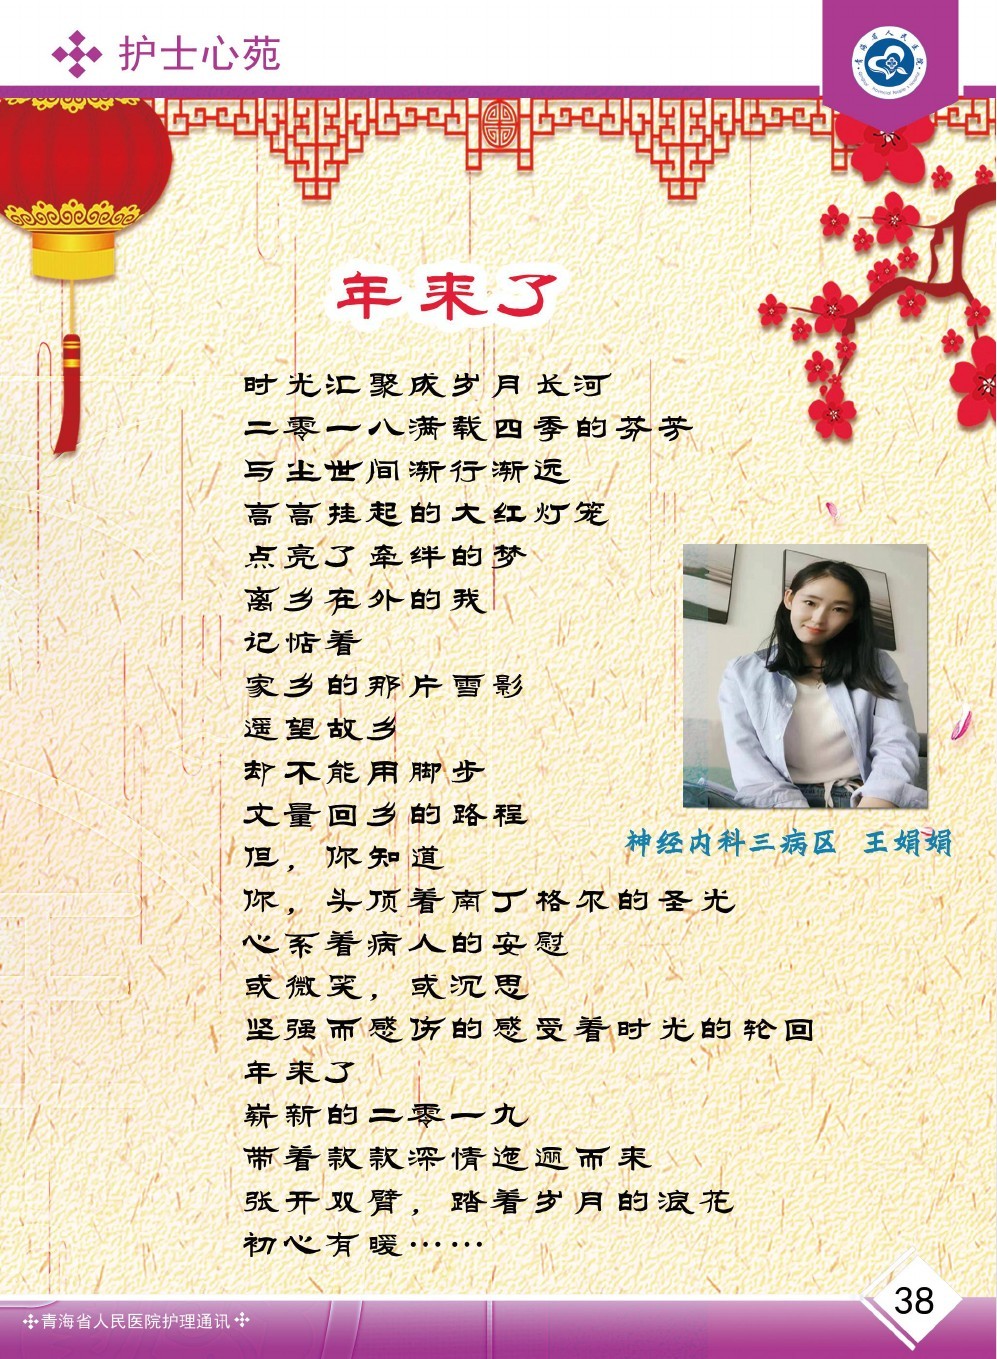 护士心苑
青海省人民医院
年来了
时光汇聚成岁月长河
二零一八满载四季的芬芳
与尘世间渐行渐远
高高挂起的大红灯笼
点亮了牵绊的梦
离乡在外的我
记惦着
家乡的那片雪影
遥望故乡
却不能用脚步
丈量回乡的路程
但，你知道
你，头顶着南丁格尔的圣光
心系着病人的安慰
或微笑，或沉思
坚强而感伤的感受着时光的轮回
年来了
崭新的二零一九
带着款款深情迤逦而来
张开双臂，踏着岁月的浪花
初心有暖……
神经内科三病区 王娟娟
青海省人民医院护理通讯
38